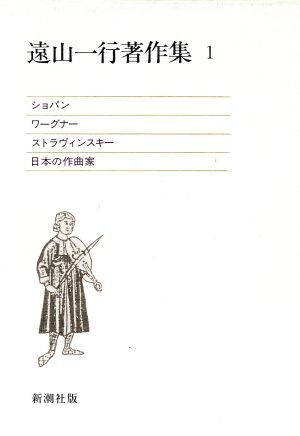 遠山一行著作集 1
ショパン
ワーグナー
ストラヴィンスキー
日本の作曲家
新潮社版